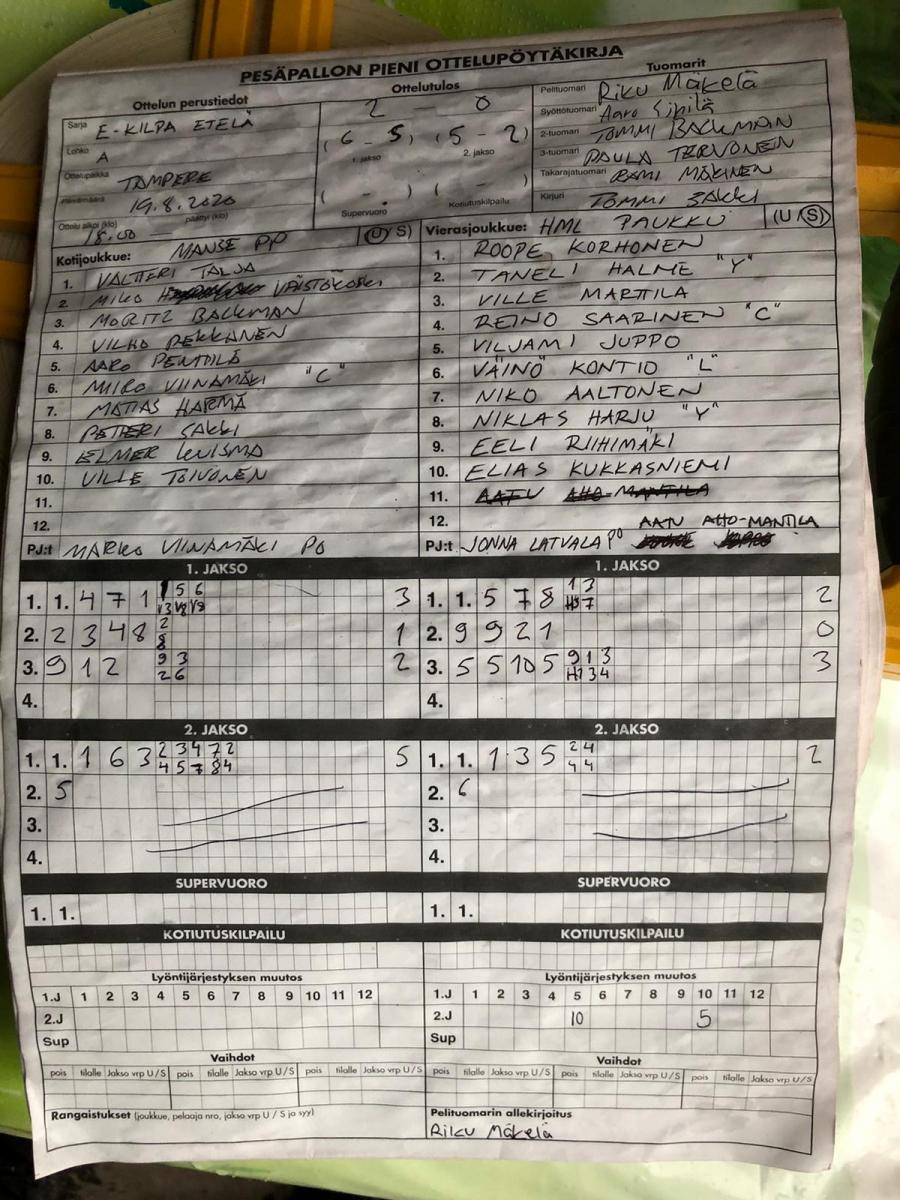 PESÄPALLON PIENI OTTELUPÖYTÄKIRJA
Ottelun perustiedot
Sarja E-KILPA ETELÄ
Lohko A
Ottelupaikka TAMPERE
Päivämäärä 19.8.2020
Ottelu alkoi (klo) 18.00 — päättyi (klo)
Ottelutulos
2 - 0
(6 - 5) (5 - 2)
1. jakso 2. jakso
( - ) ( - )
Supervuoro Kotiutuskilpailu
Tuomarit
Pelituomari Riku Mäkelä
Syöttötuomari Aaro Sipilä
2-tuomari TOMMI BACKMAN
3-tuomari PAULA TERVONEN
Takarajatuomari RAMI MÄKINEN
Kirjuri TOMMI SAKKI
Kotijoukkue: MANSE PP (U/S)
1. VALTTERI TALJA
2. MIKO VÄISTÖKOSKI
3. MORITZ BACKMAN
4. VILHO PEKKANEN
5. AARO PENTTILÄ
6. MIIRO VIINAMÄKI "C"
7. MATIAS HARMÄ
8. PETTERI SAKKI
9. ELMER
10. VILLE TOIVONEN
11.
12.
PJ:t MARKO VIINAMÄKI PO
Vierasjoukkue: HML PAUKKU (U/S)
1. ROOPE KORHONEN
2. TANELI HALME "Y"
3. VILLE MARTTILA
4. REINO SAARINEN "C"
5. VILJAMI JUPPO
6. VÄINÖ KONTIO "L"
7. NIKO AALTONEN
8. NIKLAS HARJU "Y"
9. EELI RIIHIMÄKI
10. ELIAS KUKKASNIEMI
11. AATU AHO-MANTILA
12. AATU AHO-MANTILA
PJ:t JONNA LATVALA PO
1. JAKSO
1. 1. 4 7 1 1 5 6 3
13 V8 V8
2. 2 3 4 8 2 1
8
3. 9 1 2 9 3 2
2 6
4.
1. JAKSO
1. 1. 5 7 8 1 3 2
7
2. 9 9 2 1 0
3. 5 5 10 5 9 1 3 3
3 4
4.
2. JAKSO
1. 1. 1 6 3 2 3 4 7 2 5
4 5 7 8 4
2. 5
3.
4.
2. JAKSO
1. 1. 1 3 5 2 4 2
4 4
2. 6
3.
4.
SUPERVUORO
1. 1.
SUPERVUORO
1. 1.
KOTIUTUSKILPAILU
KOTIUTUSKILPAILU
Lyöntijärjestyksen muutos
1.J 1 2 3 4 5 6 7 8 9 10 11 12
2.J
Sup
Lyöntijärjestyksen muutos
1.J 1 2 3 4 5 6 7 8 9 10 11 12
2.J 10 5
Sup
Vaihdot
pois tilalle Jakso vrp U/S pois tilalle Jakso vrp U/S pois tilalle Jakso vrp U/S
Vaihdot
pois tilalle Jakso vrp U/S pois tilalle Jakso vrp U/S pois tilalle Jakso vrp U/S
Rangaistukset (joukkue, pelaaja nro, jakso vrp U / S ja syy)
Pelituomarin allekirjoitus
Riku Mäkelä